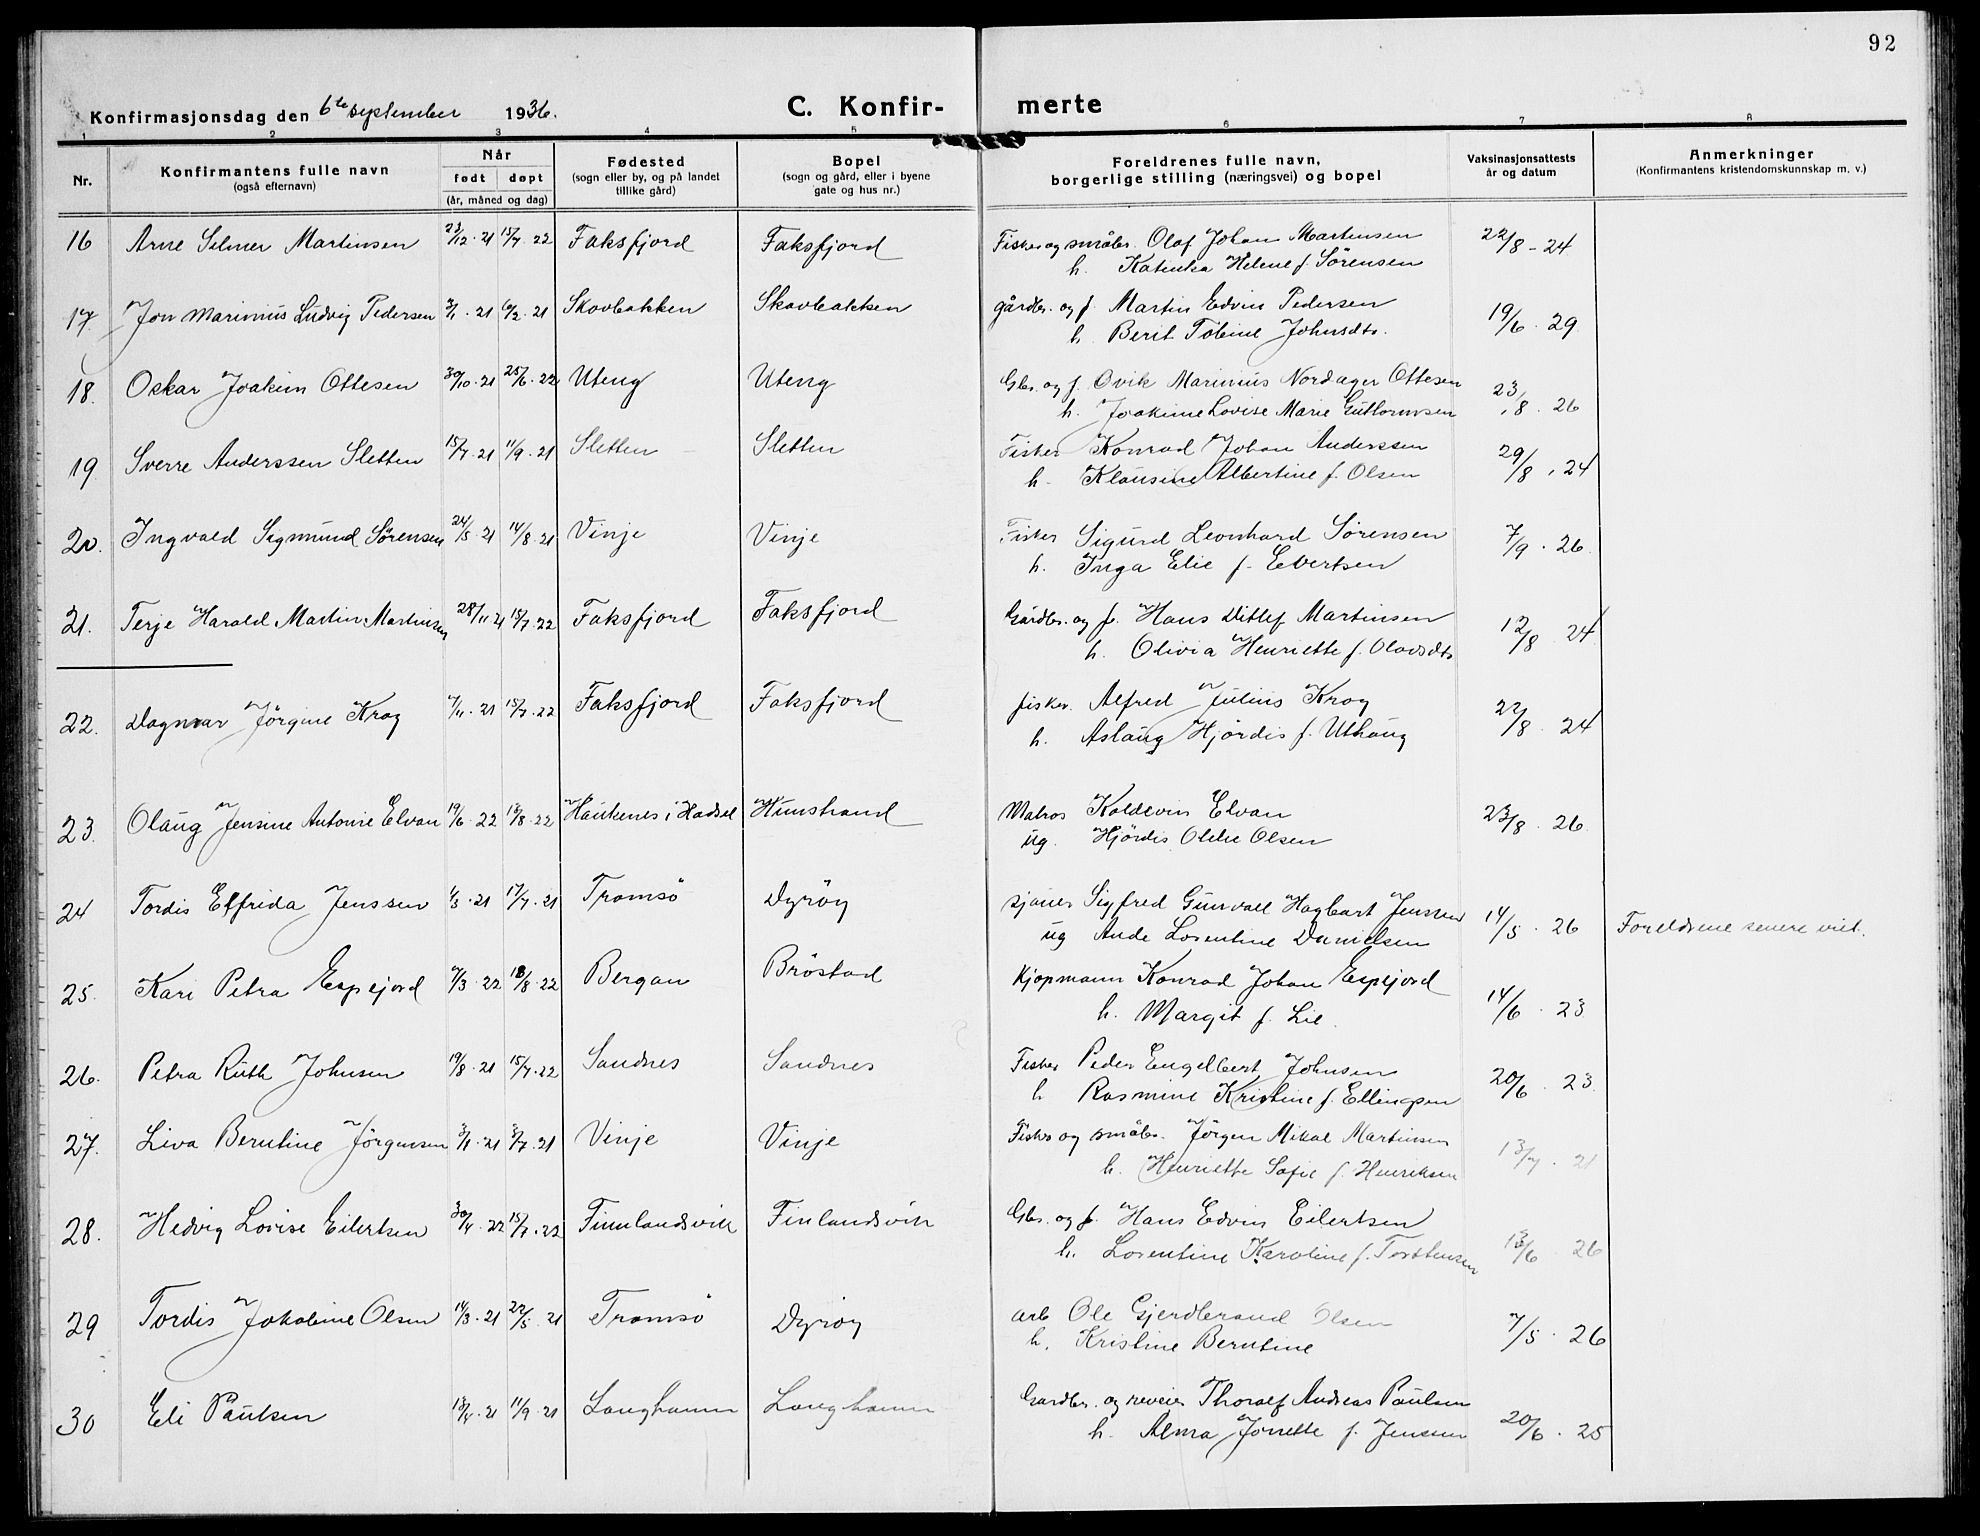 92
Konfirmasjonsdag den 6te september 1936.
C. Konfir- merte
1 2 3 4 5 6 7 8
Nr.
Konfirmantens fulle navn
(også efternavn)
Når
født døpt
(år, måned og dag)
Fødested
(sogn eller by, og på landet
tillike gård)
Bopel
(sogn og gård, eller i byene
gate og hus nr.)
Foreldrenes fulle navn,
borgerlige stilling (næringsvei) og bopel
Vaksinasjonsattests
år og datum
Anmerkninger
(Konfirmantens kristendomskunnskap m. v.)
16 Arne Selmer Martinsen 23/12.21 15/7.22 Faksfjord Faksfjord Fisker og småbr. Olaf Johan Martinsen 22/8-24
h. Katinka Helene f. Sörensen
17 Jon Marinius Ludvig Pedersen 3/1.21 10/2.21 Skovbakken Skovbakken gårdbr. og f. Martin Edvin Pedersen 19/6.29
h. Berit Tobine Johnsdtr.
18. Oskar Joakim Ottesen 30/10.21 25/6.22 Uteng Uteng Gbr. og f. Ovik Marinius Nordager Ottesen 23/8.26
h. Joakime Lovise Marie Guttormsen
19 Sverre Anderssen Sletten 15/7.21 11/9.21 Sletten Sletten Fisker Konrad Johan Anderssen 29/8.24
h. Klausine Albertine f. Olsen
20. Ingvald Sigmund Sörensen 24/5.21 14/8.21 Vinje Vinje Fisker Sigurd Leonhard Sörensen 7/9.26
h. Inga Elie f. Evertsen
21. Terje Harald Martin Martinsen 28/11.21 15/7.22 Faksfjord Faksfjord Gårdbr. og f. Hans Ditlef Martinsen 12/8.24
h. Olivia Henriette f. Olavsdtr
22. Dagmar Jörgine Krog 7/11.21 15/7.22 Faksfjord Faksfjord fisker. Alfred Julius Krog 22/8.24
h. Aslaug Hjördis f. Uthaug
23. Olaug Jensine Antonie Elvan 19/6.22 13/8.22 Haukenes i Hadsel Hunstrand Matros Koldevin Elvan 23/8.26
ug. Hjördis Olsen
24 Tordis Elfrida Jenssen 1/3.21 17/7.21 Tromsö Dyröy sjauer Sigfred Gunvall Hagbart Jenssen 14/5.26 Foreldrene senere viet.
ug Ande Lorentine Danielsen
25. Kari Petra Espejord 7/3.22 13/8.22 Bergan Bröstad Kjøpmann Konrad Johan Espejord 14/6.23
h. Margit f. Lie.
26. Petra Ruth Johnsen 19/8.21 15/7.22 Sandnes Sandnes Fisker Peder Engelbert Johnsen 20/6.23
h Rasmine Kristine f. Ellingsen
27. Liva Berntine Jörgensen 3/1.21 3/7.21 Vinje Vinje Fisker og småbr. Jörgen Mikal Martinsen 13/7.21
h. Henriette Sofie f. Henriksen
28. Hedvig Lovise Eilertsen 30/4.22 15/7.22 Finnlandsvik Finlandsvik Gbr. og f. Hans Edvin Eilertsen 13/6 26
h. Lorentine Karoline f. Torstensen
29 Tordis Jakobine Olsen 14/3.21 22/5.21 Tromsö Dyröy arb Ole Gjerdbrand Olsen 7/5.26
h. Kristine Berntine
30 Eli Paulsen 13/4.21 11/9.21 Langhamn Langhamn Gardbr. og reveier Thoralf Andreas Paulsen 20/6.25
h. Alma Jörrette f. Jensen